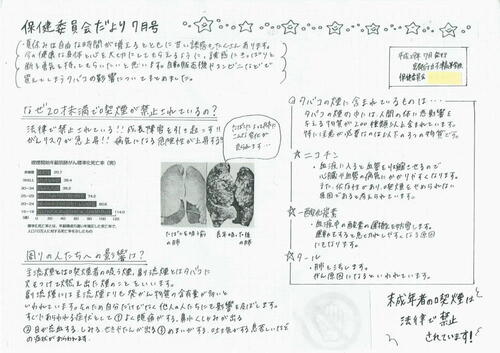 保健委員会だより 7月号
夏休みは自由な時間が増えるとともに甘い誘惑もたくさんあります。
今の健康な身体と心を大切にしてもらえるように、誘惑にきっぱりと
断る勇気を持ってもらいたいと思います。自動販売機やコンビニなどで
買えてしまうタバコの影響についてまとめました。
平成 年7月発行
保健委員会
なぜ20才未満での喫煙が禁止されているの?
法律で禁止されている!!成長障害を引き起こす!!
がんリスクが急上昇!!病気になる危険性が上昇する!!
たばこによって肺が
こんな変化が
見られます…
喫煙開始年齢別肺がん標準化死亡率(男)
たばこを吸う前
の肺
長年吸った後
の肺
周りの人たちへの影響は?
主流煙とは喫煙者の吸う煙、副流煙とはタバコに
火をつけると燃え出た煙のことをいいます。
副流煙には主流煙よりも発がん物質の含有量が多いと
いわれています。そのため自分だけでなく他の人たちにも影響を及ぼします。
すぐにあらわれる症状として①よく頭痛がする、鼻水くしゃみが出る
②目が充血する、しみる、せきやたんが出る③めまいがする、吐き気がする
の症状があらわれます。
Qタバコの煙に含まれているものは…
タバコの煙の中には、人間の体に悪影響を
与える物質が200種類ふくまれています。
特に注意が必要なのは以下の3つの物質です。
☆ニコチン
・血液に入ると血管を収縮させるので
心臓や血管の病気にかかりやすくなります。
また、依存性があり、喫煙をやめられない
原因であると考えられています。
☆一酸化炭素
・血液中の酸素の運搬を妨害します。
運動をすると息ぎれしやすくなる原因
にもなります。
☆タール
・肺をよごします。
がん原因になるといわれています。
未成年者の喫煙は
法律で禁止
されています!